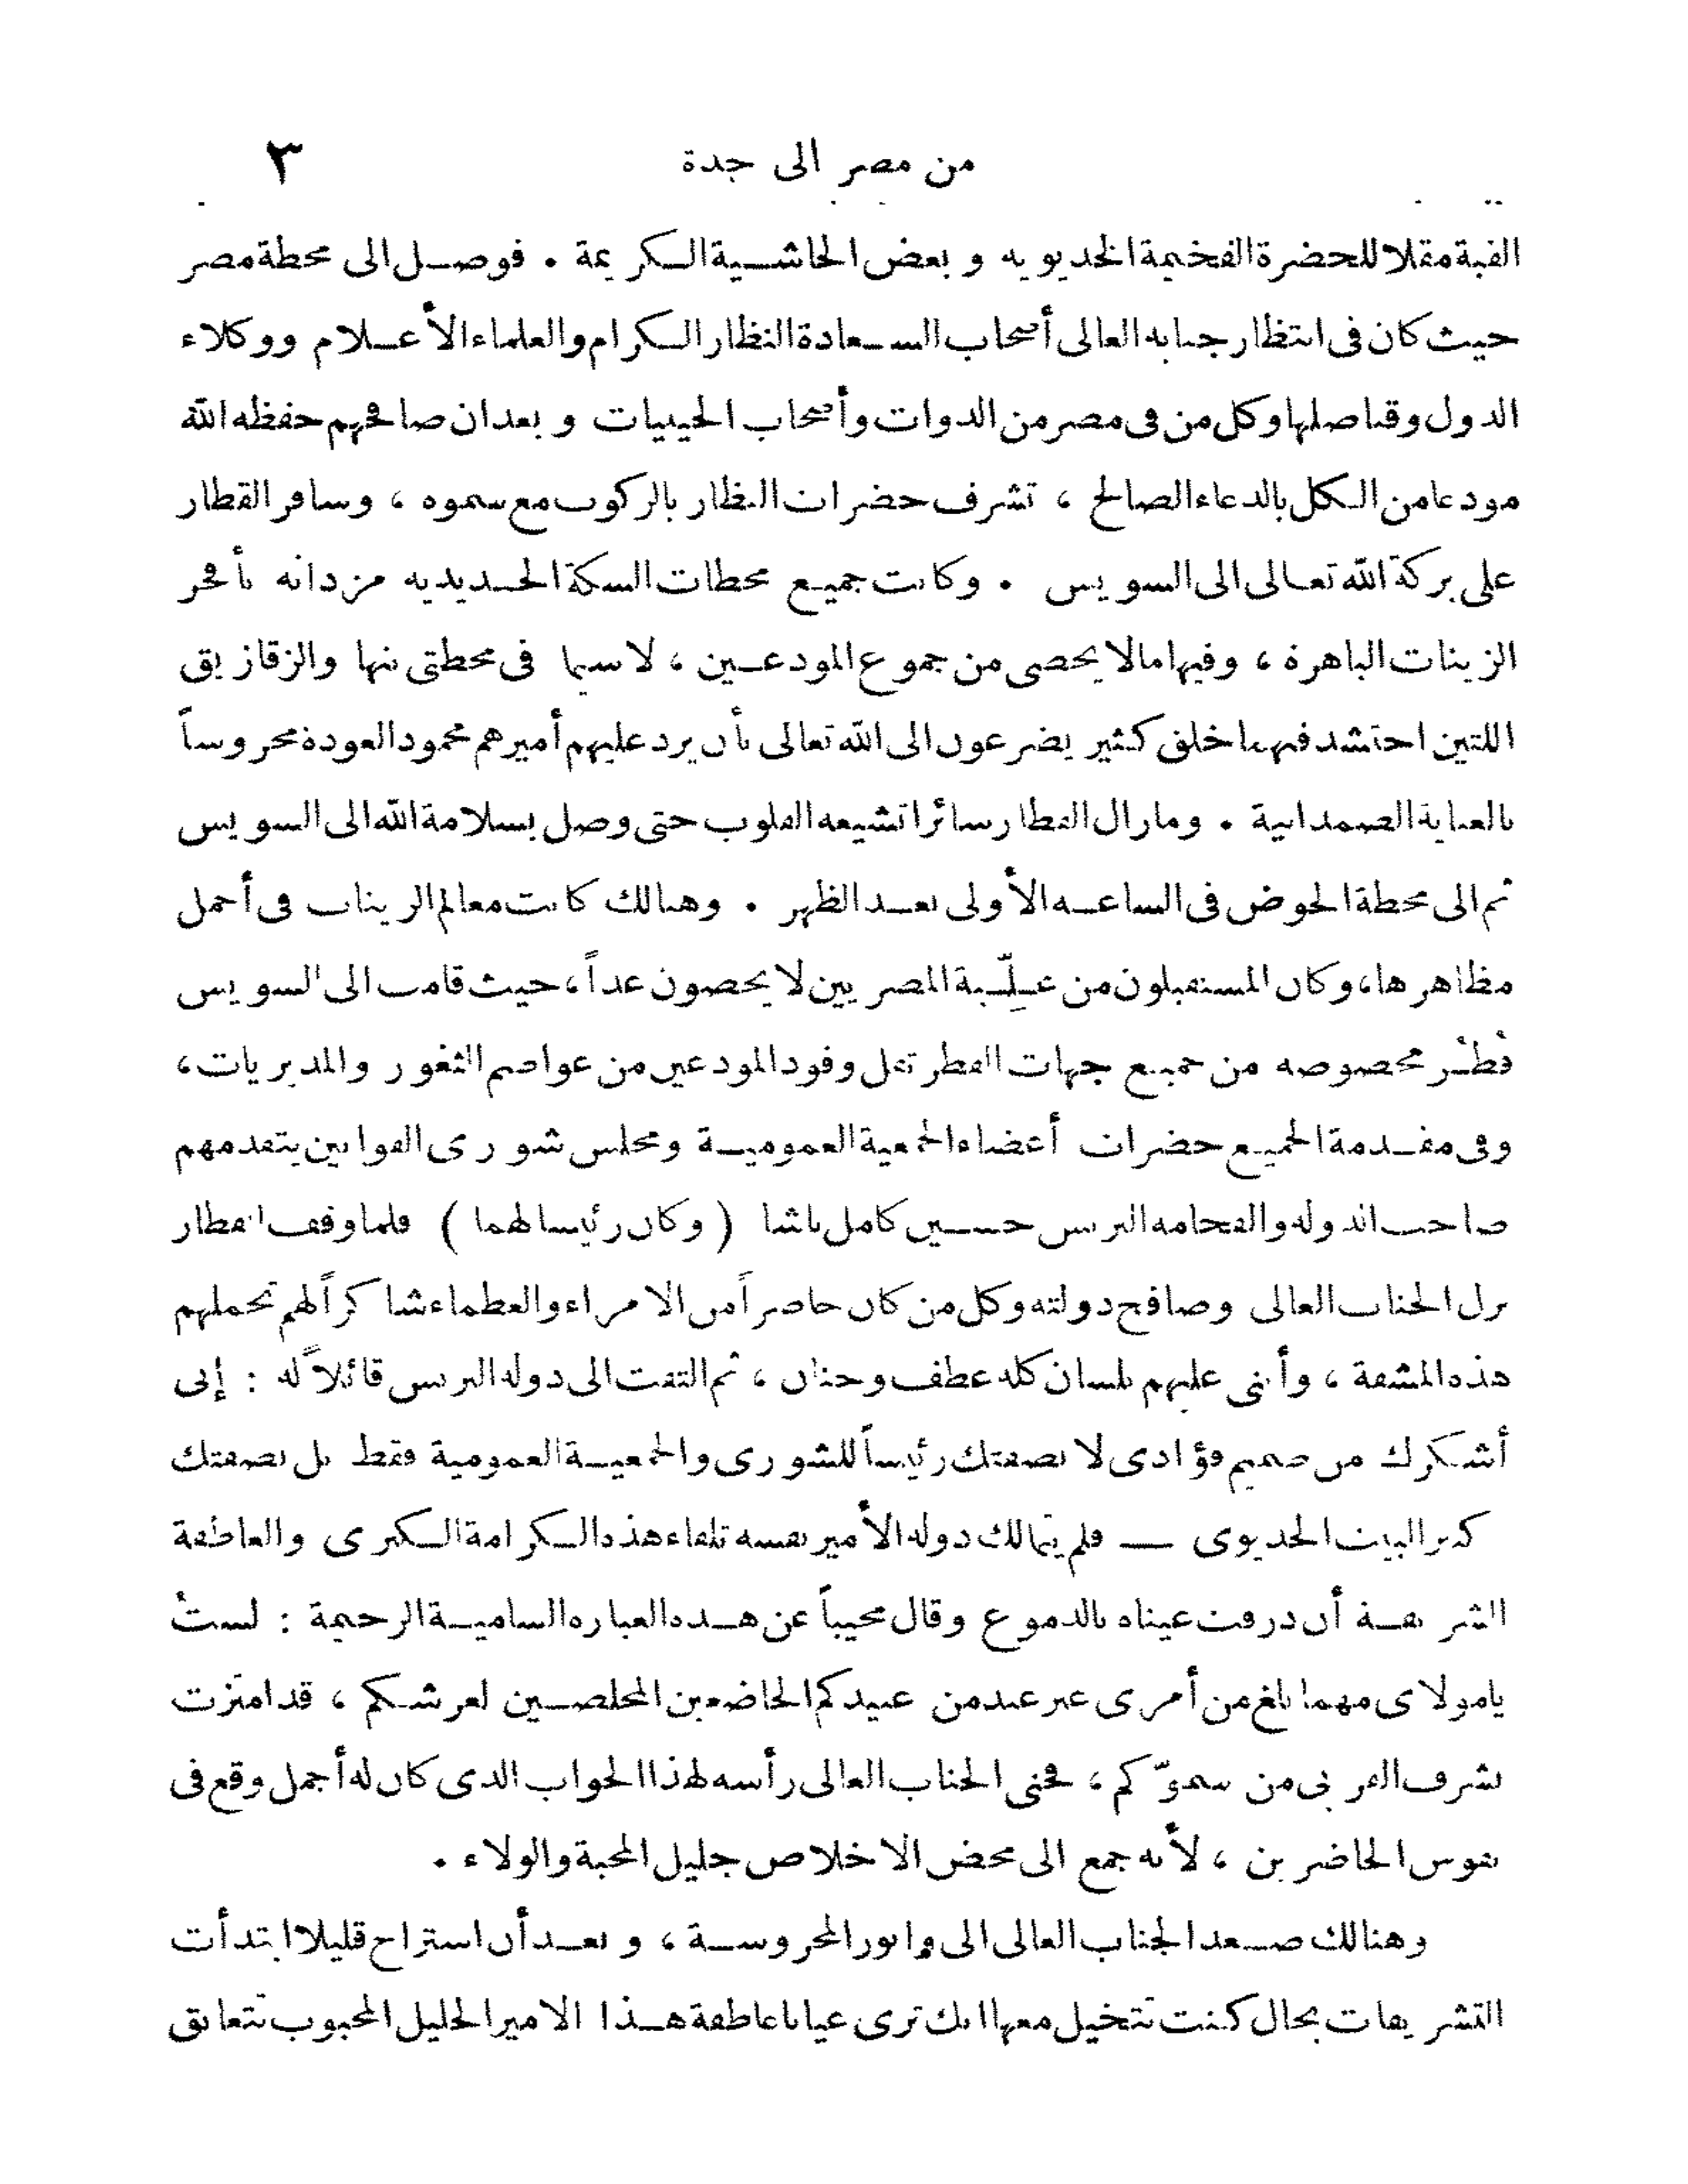 من مصر الى جدة ٣
القبة مقلا للحضرة الفخيمة الخديويه وبعض الحاشية الكريمة . فوصل الى محطة مصر
حيث كان فى انتظار جنابه العالى أصحاب السعادة النظار الكرام والعلماء الأعلام ووكلاء
الدول وقناصلها وكل من فى مصر من الذوات وأصحاب الحيثيات وبعد ان صافحهم حفظه الله
مودعا من الكل بالدعاء الصالح ، تشرف حضرات النظار بالركوب مع سموه ، وسافر القطار
على بركة الله تعالى الى السويس . وكانت جميع محطات السكة الحديديه مزدانه بأفخر
الزينات الباهرة ، وفيها ما لا يحصى من جموع المودعين ، لا سيما فى محطتى بنها والزقازيق
اللتين احتشد فيهما خلق كثير يضرعون الى الله تعالى بأن يرد عليهم أميرهم محمود العودة محروساً
بالعناية الصمدانية . وما زال القطار سائرا تشيعه القلوب حتى وصل بسلامة الله الى السويس
ثم الى محطة الحوض فى الساعه الأولى بعد الظهر . وهنالك كانت معالم الزينات فى أجمل
مظاهرها، وكان المستقبلون من عِلّية المصريين لا يحصون عداً، حيث قامت الى السويس
قُطُر مخصوصه من جميع جهات القطر تقل وفود المودعين من عواصم الثغور والمديريات،
وفى مقدمة الجميع حضرات أعضاء الجمعية العمومية ومجلس شورى القوانين يتقدمهم
صاحب الدوله والفخامه البرنس حسين كامل باشا ( وكان رئيسا لهما ) فلما وقف القطار
نزل الجناب العالى وصافح دولته وكل من كان حاضراً من الامراء والعظماء شاكراً لهم تحملهم
هذه المشقة ، وأثنى عليهم بلسان كله عطف وحنان ، ثم التفت الى دوله البرنس قائلاً له : إنى
أشكرك من صميم فؤادى لا بصفتك رئيساً للشورى والجمعية العمومية فقط بل بصفتك
كبير البيت الخديوى — فلم يتمالك دوله الأمير نفسه تلقاء هذه الكرامة الكبرى والعاطفة
الشريفة أن ذرفت عيناه بالدموع وقال مجيباً عن هذه العباره السامية الرحيمة : لستُ
يا مولاى مهما بلغ من أمرى غير عبد من عبيدكم الخاضعين المخلصين لعرشكم ، قد امتزت
بشرف القربى من سموّكم ، فحنى الجناب العالى رأسه لهذا الجواب الذى كان له أجمل وقع فى
نفوس الحاضرين ، لأنه جمع الى محض الاخلاص جليل المحبة والولاء .
وهنالك صعد الجناب العالى الى وابور المحروسة ، وبعد أن استراح قليلا ابتدأت
التشريفات بحال كنت تتخيل معها انك ترى عيانا عاطفة هذا الامير الجليل المحبوب تتعانق